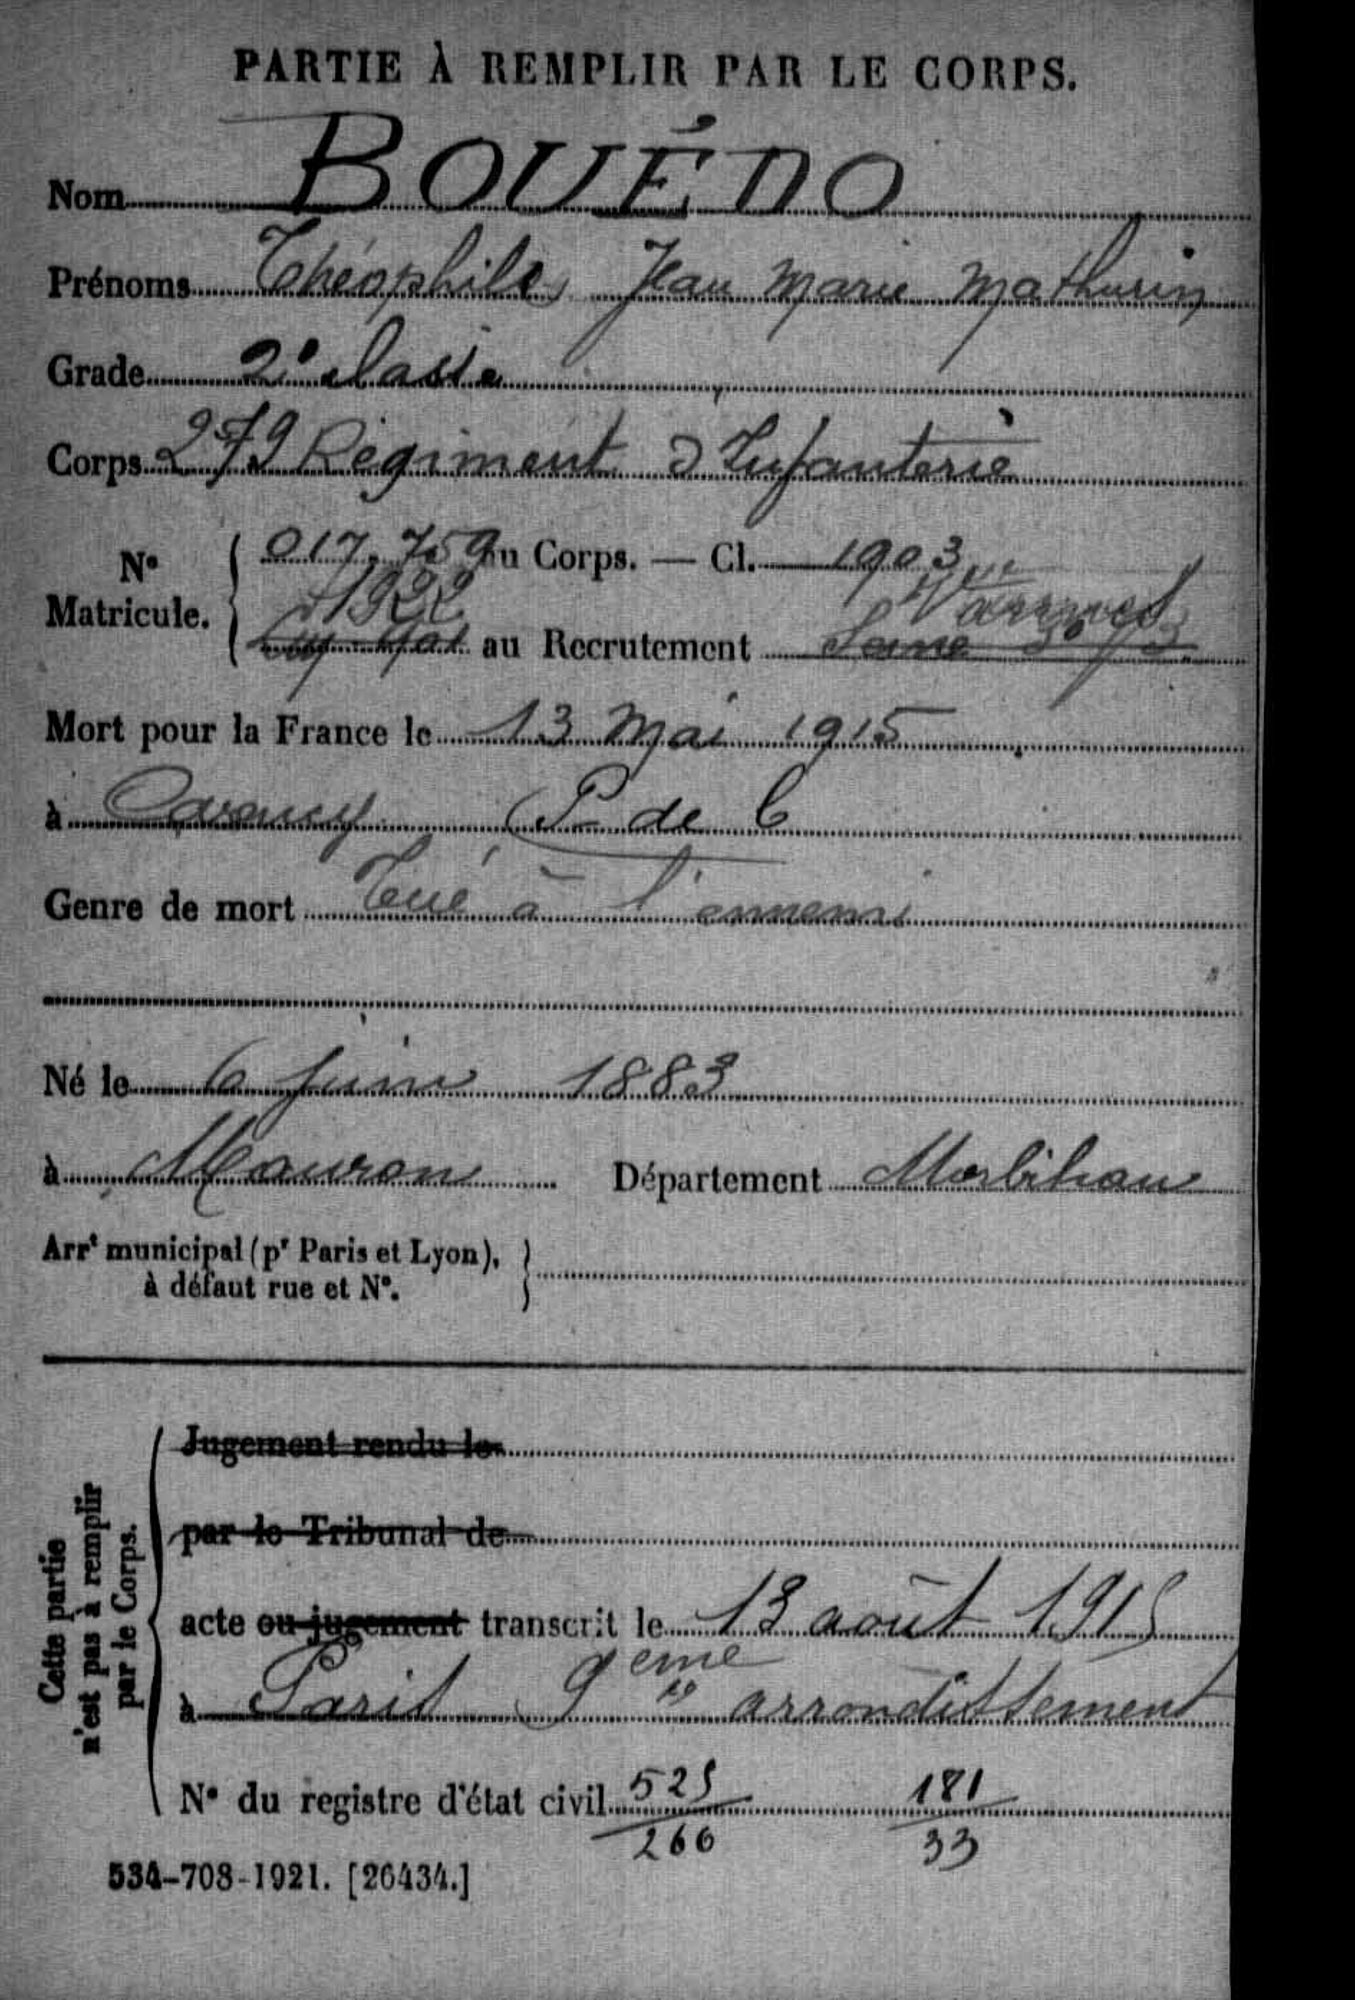 PARTIE À REMPLIR PAR LE CORPS.
Nom BOUÉDO
Prénoms Théophile, Jean Marie Mathurin
Grade 2e classe
Corps 279 Régiment d'Infanterie
No Matricule.
017.759 au Corps. — Cl. 1903
1922
au Recrutement Seine 3e
Mort pour la France le 13 Mai 1915
à Carency (P de C
Genre de mort Tué à l'ennemi
Né le 6 Juin 1883
à Mauron Département Morbihan
Arrt municipal (pr Paris et Lyon),
à défaut rue et No.
Cette partie
n'est pas à remplir
par le Corps.
Jugement rendu le
par le Tribunal de
acte ou jugement transcrit le 13 août 1915
à Paris 9eme arrondissement
No du registre d'état civil 525 181
266 33
534-708-1921. [26434.]